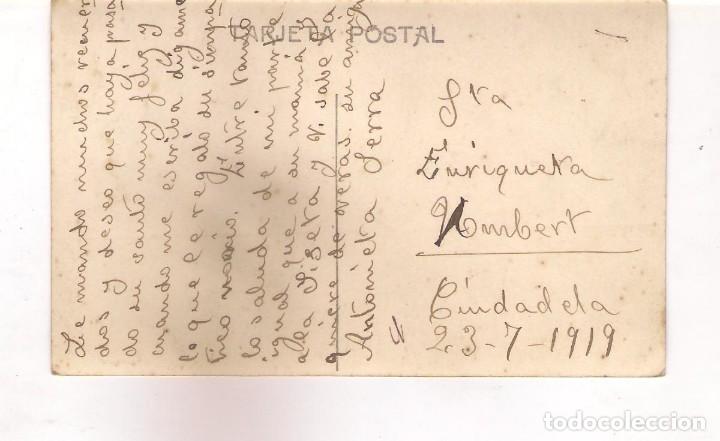 TARJETA POSTAL
Le mando muchos recuer
dos y deseo que haya pasa
do su santo muy feliz y
cuando me escriba digame
lo que le regaló su simpá
tico novio. Entre tanto
lo saluda de mi parte
igual que a su mamá y
a la Siseta y V. sabe la
quiere de veras su amiga
Antonieta Serra
Sta
Enriqueta
Umbert
Ciudadela
23-7-1919
todocoleccion